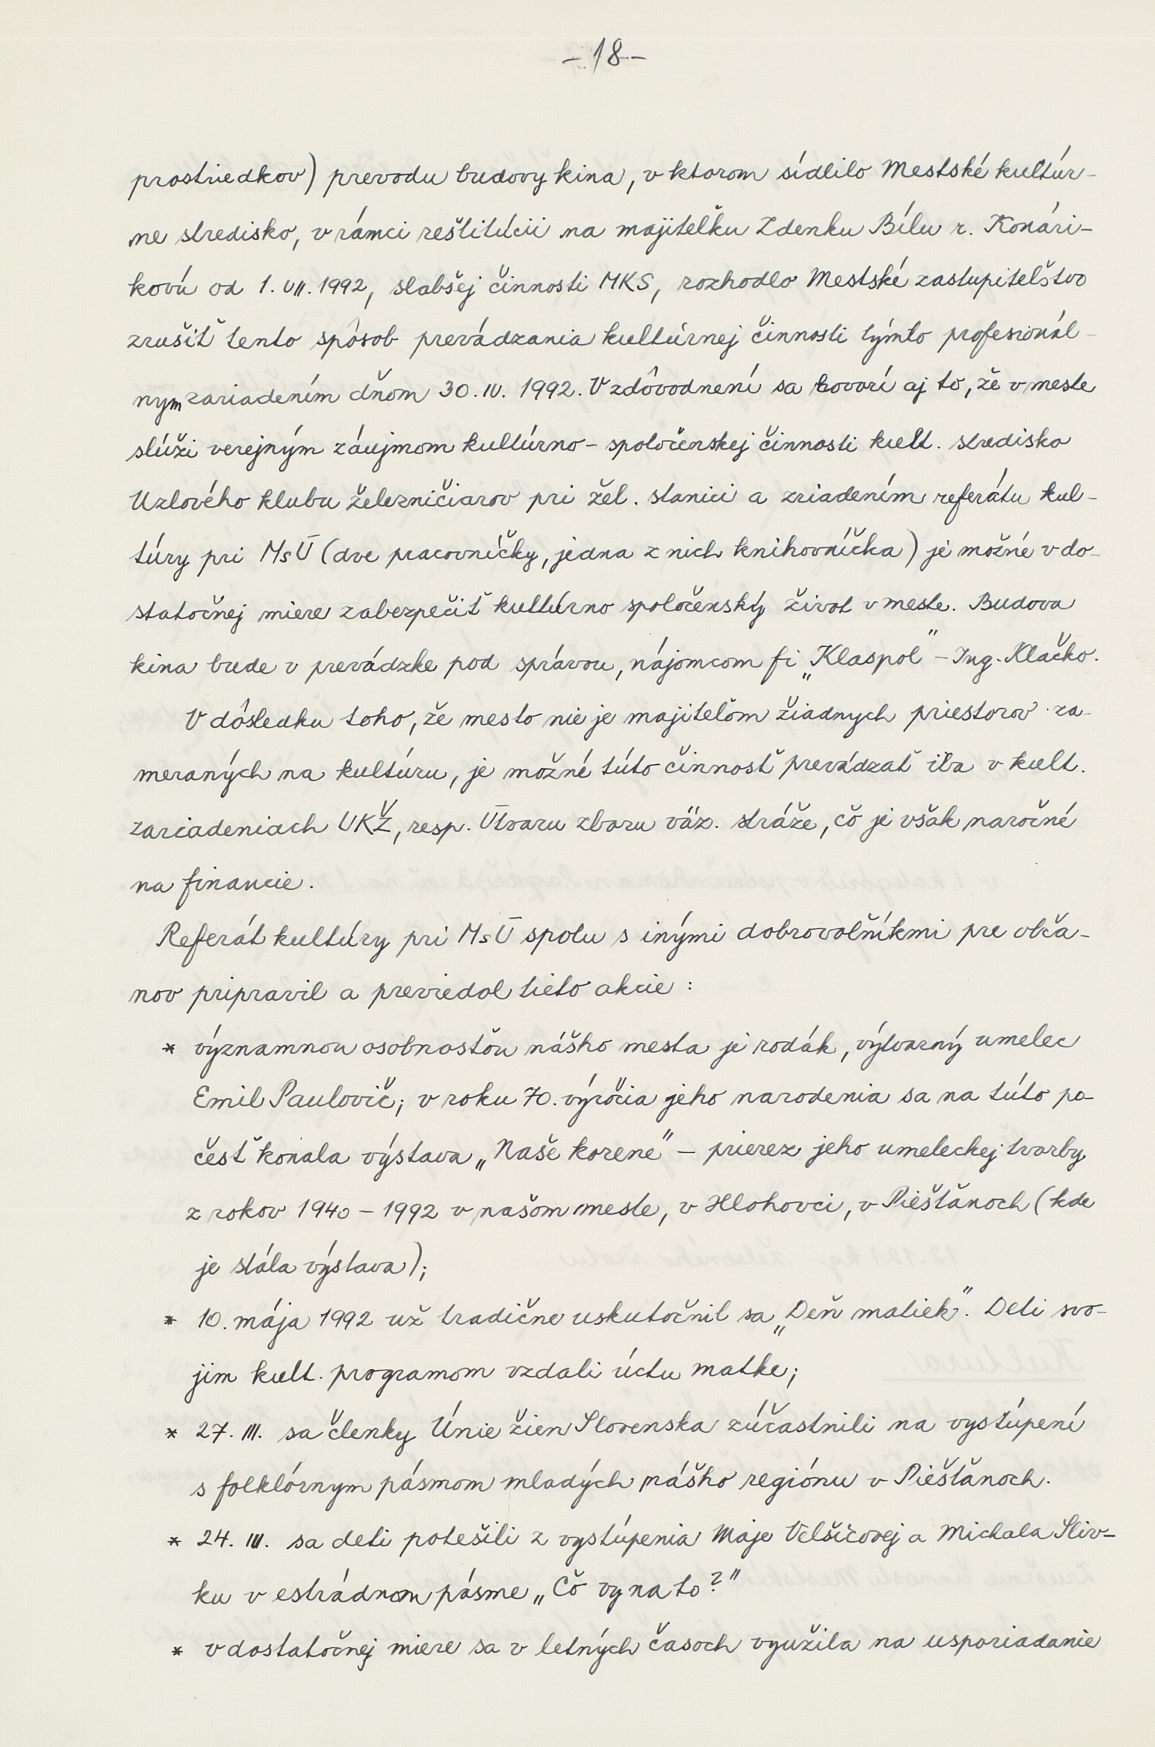 -18-
prostriedkov) prevodu budovy kina, v ktorom sídlilo Mestské kultúr-
ne stredisko, v rámci reštitúcii na majiteľku Zdenku Bílu r. Konári-
kovú od 1. VII. 1992, slabšej činnosti MKS, rozhodlo Mestské zastupiteľstvo
zrušiť tento spôsob prevádzania kultúrnej činnosti týmto profesionál-
nym zariadením dňom 30. IV. 1992. V zdôvodnení sa hovorí aj to, že v meste
slúži verejným záujmom kultúrno-spoločenskej činnosti kult. stredisko
Uzlového klubu železničiarov pri žel. stanici a zriadením referátu kul-
túry pri MsÚ (dve pracovníčky, jedna z nich knihovníčka) je možné v do-
statočnej miere zabezpečiť kultúrno spoločenský život v meste. Budova
kina bude v prevádzke pod správou, nájomcom fi „Klaspol" - Ing. Klačko.
V dôsledku toho, že mesto nie je majiteľom žiadnych priestorov za-
meraných na kultúru, je možné túto činnosť prevádzať iba v kult.
zariadeniach UKŽ, resp. Útvaru zboru väz. stráže, čo je však naročné
na financie.
Referát kultúry pri MsÚ spolu s inými dobrovoľníkmi pre obča-
nov pripravil a previedol tieto akcie :
* významnou osobnosťou nášho mesta je rodák, výtvarný umelec
Emil Paulovič; v roku 70. výročia jeho narodenia sa na túto po-
česť konala výstava „Naše korene" - prierez jeho umeleckej tvorby
z rokov 1940 - 1992 v našom meste, v Hlohovci, v Piešťanoch (kde
je stála výstava);
* 10. mája 1992 už tradične uskutočnil sa „Deň matiek". Deti svo-
jim kult. programom vzdali úctu matke;
* 27. III. sa členky Únie žien Slovenska zúčastnili na vystúpení
s folklórnym pásmom mladých nášho regiónu v Piešťanoch.
* 24. III. sa deti potešili z vystúpenia Maje Velšicovej a Michala Sliv-
ku v estrádnom pásme „Čo vy na to?"
* v dostatočnej miere sa v letných časoch využila na usporiadanie